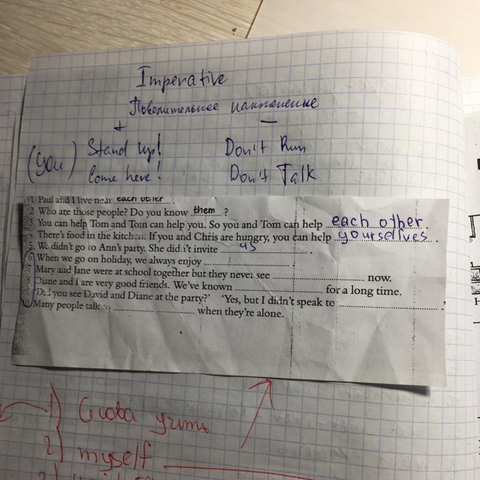 Imperative
Повелительное наклонение
+ –
(you) Stand up! Don't Run
Come here! Don't Talk
1 Paul and I live near each other
2 Who are those people? Do you know them ?
You can help Tom and Tom can help you. So you and Tom can help each other.
There's food in the kitchen. If you and Chris are hungry, you can help yourselves.
5 We didn't go to Ann's party. She didn't invite us .
When we go on holiday, we always enjoy
Mary and Jane were at school together but they never see now.
Diane and I are very good friends. We've known for a long time.
you see David and Diane at the party?' 'Yes, but I didn't speak to .
Many people talk when they're alone.
1)
2) myself